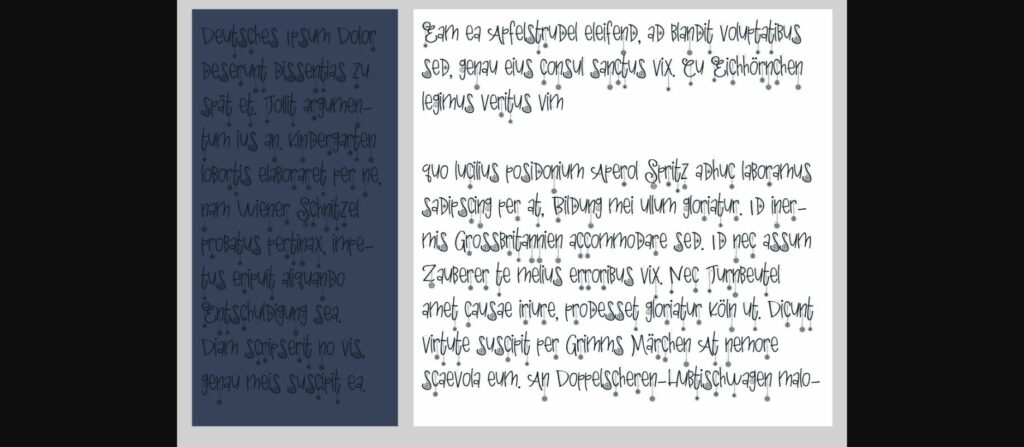 Deutsches Ipsum Dolor
deserunt dissentias zu
spät et. Tollit argumen-
tum ius an. Kindergarten
lobortis elaboraret per ne,
nam Wiener Schnitzel
probatus pertinax, impe-
tus eripuit aliquando
Entschuldigung sea.
Diam scripserit no vis,
genau meis suscipit ea.
Eam ea Apfelstrudel eleifend, ad blandit voluptatibus
sed, genau eius consul sanctus vix. Eu Eichhörnchen
legimus veritus vim
quo lucilius posidonium Aperol Spritz adhuc laboramus
sadipscing per at, Bildung mei ullum gloriatur. Id iner-
mis Grossbritannien accommodare sed. Id nec assum
Zauberer te melius erroribus vix. Nec Turnbeutel
amet causae iriure, probesset gloriatur Köln ut. Dicunt
virtute suscipit per Grimms Märchen At nemore
scaevola eum. An Doppelscheren-Hubtischwagen malo-